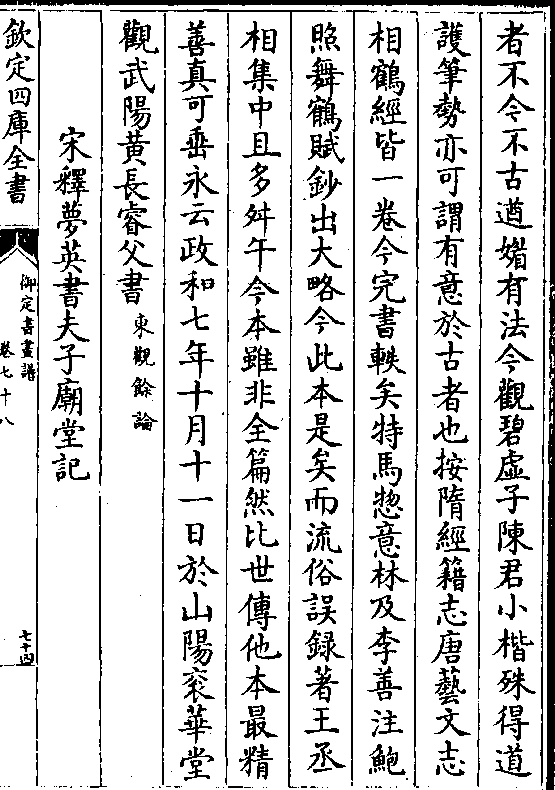 者不今不古遒媚有法今觀碧虛子陳君小楷殊得道
護筆勢亦可謂有意於古者也按隋經籍志唐藝文志
相鶴經皆一卷今完書軼矣特馬惣意林及李善注鮑
照舞鶴賦鈔出大略今此本是矣而流俗誤録著王丞
相集中且多舛午今本雖非全篇然比世傳他本最精
善真可垂永云政和七年十月十一日於山陽衮華堂
觀武陽黄長睿父書東觀餘論
宋釋夢英書夫子廟堂記
欽定四庫全書
御定書畫譜
卷七十八
七十四